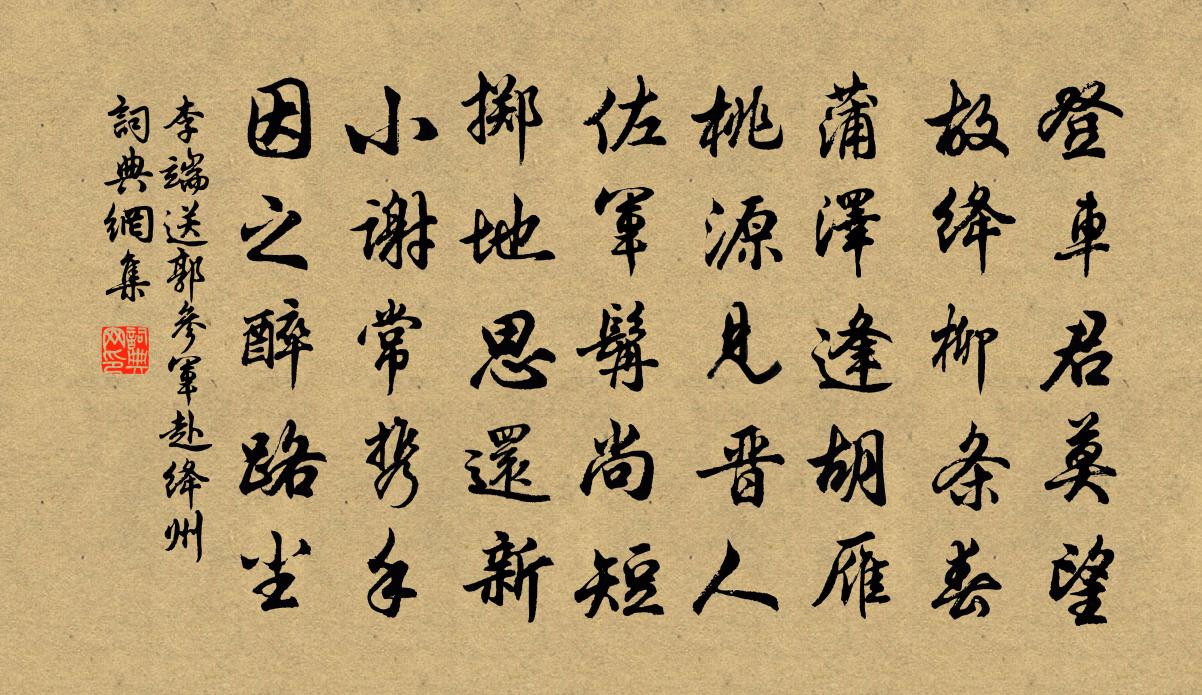 登車君莫望
故絳柳条春
蒲澤逢胡雁
桃源見晋人
佐軍髯尚短
擲地思還新
小謝常携手
因之醉路尘
李端送郭參軍赴絳州
詞典網集
詞典网印